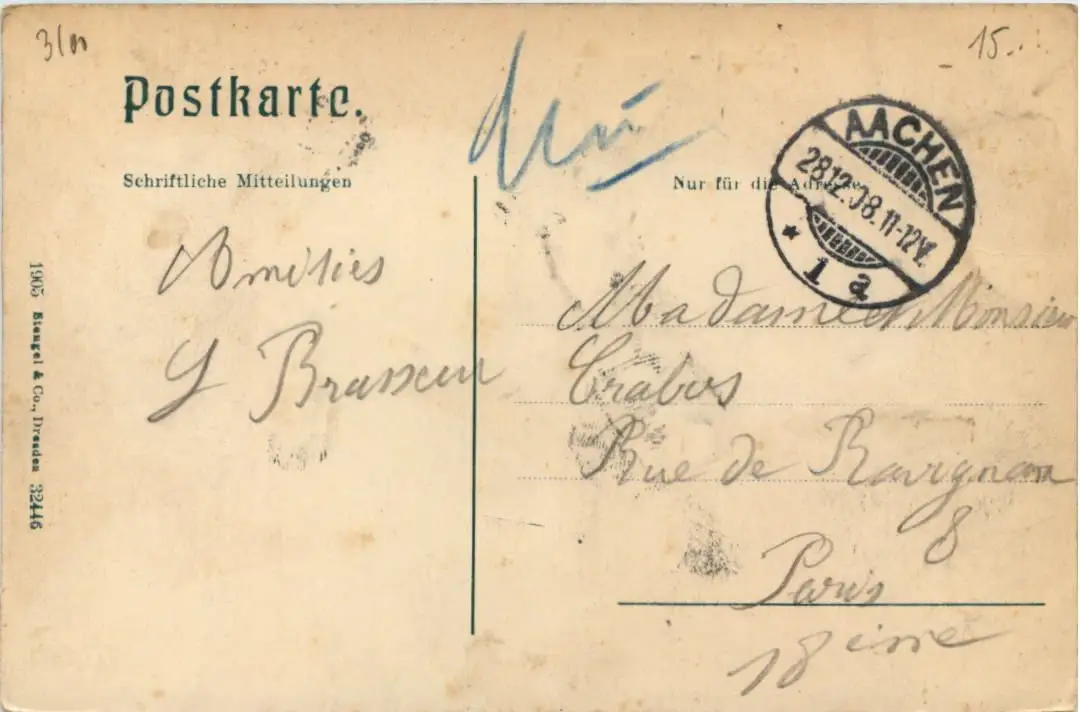 15.
Postkarte.
Schriftliche Mitteilungen
Nur für die Adresse
AACHEN
28.12.08.11-12V.
* 1 a
Amitiés
Y Brasseur
Madame et Monsieur
Crabos
Rue de Ravignan
8
Paris
18 eme
1905 Stengel & Co., Dresden 32446